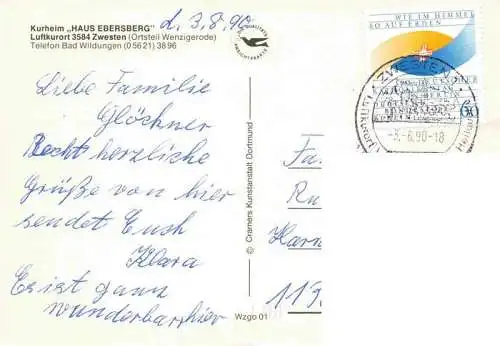 Kurheim „HAUS EBERSBERG"
Luftkurort 3584 Zwesten (Ortsteil Wenzigerode)
Telefon Bad Wildungen (05621) 3896
d. 3.8.90
Liebe Familie
Glöchner
Recht herzliche
Grüße von hier
sendet Euch
Klara
Es ist ganz
wunderbar hier
© Cramers Kunstanstalt Dortmund
Wzgo 01
WIE IM HIMMEL
SO AUF ERDEN
60
ZWESTEN
-3.-8.90-18
Fa
Ru
Har
113